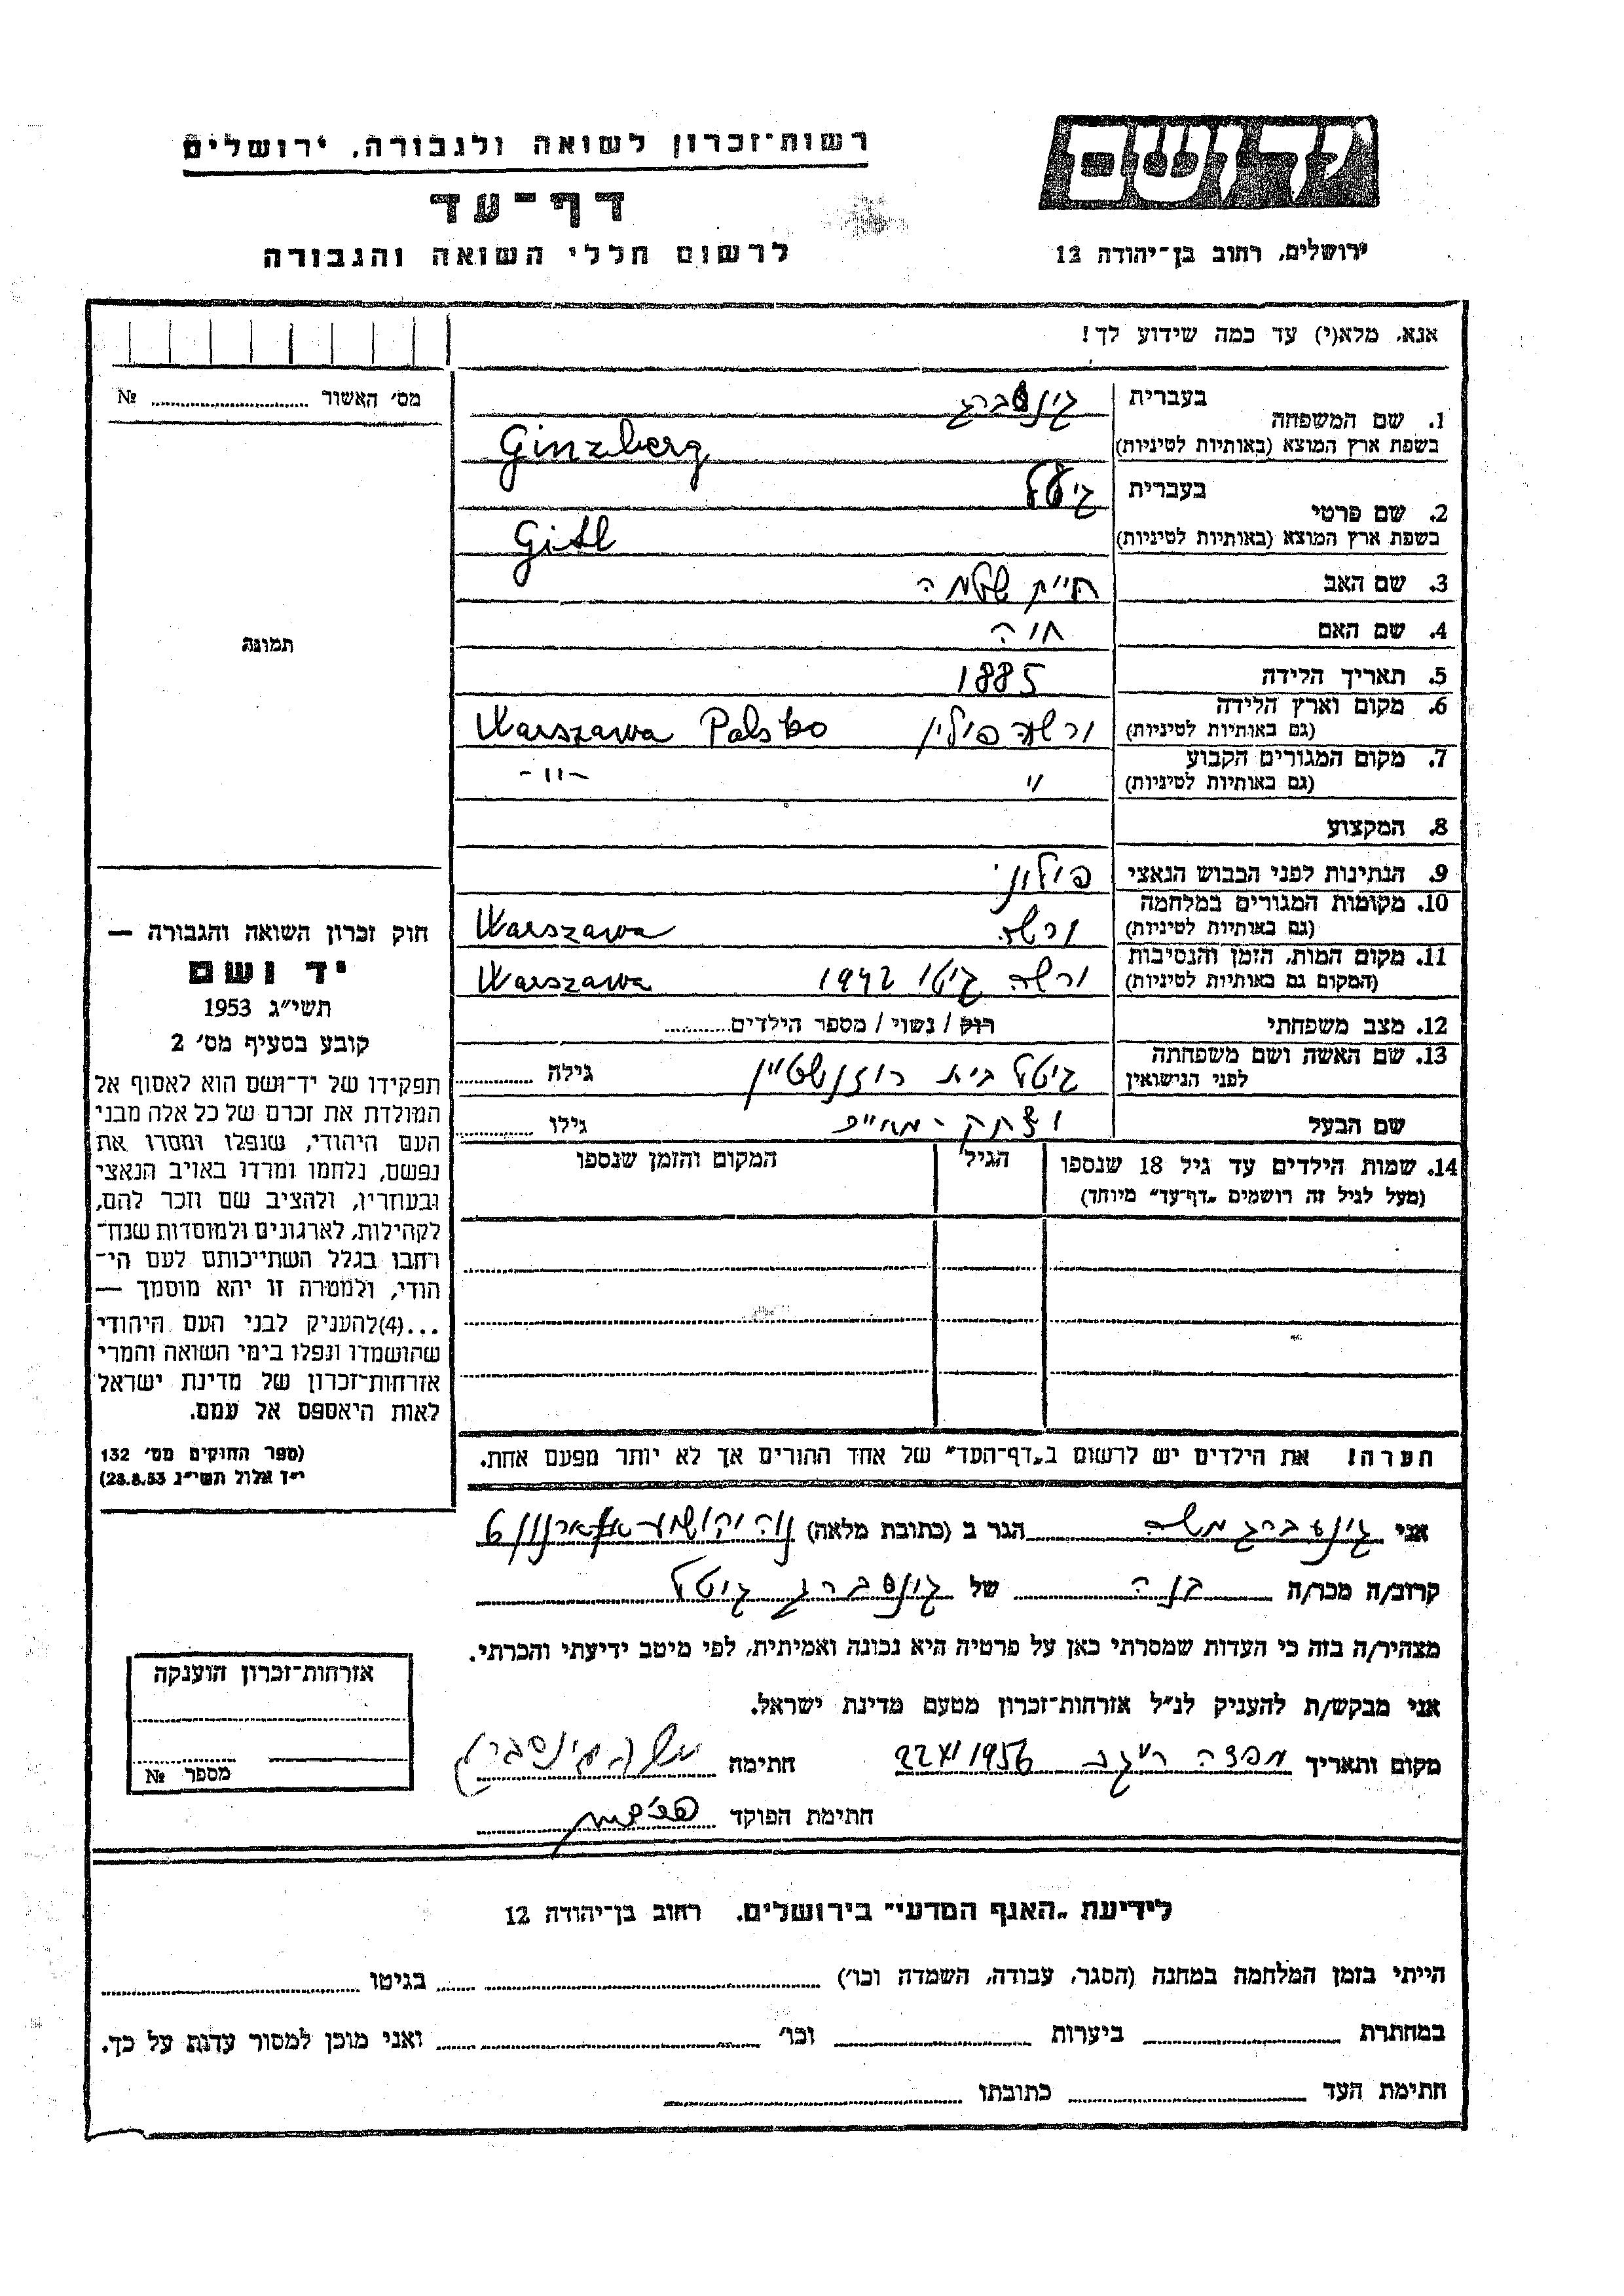 רשות־זכרון לשואה ולגבורה, ירושלים
דף־עד
לרשום חללי השואה והגבורה
יד ושם
ירושלים, רחוב בן־יהודה 12
אנא, מלא(י) עד כמה שידוע לך!
מס׳ האשור № 
בעברית
1. שם המשפחה גינצברג
בשפת ארץ המוצא (באותיות לטיניות) Ginzberg
בעברית גיטל
2. שם פרטי
בשפת ארץ המוצא (באותיות לטיניות) Gitl
3. שם האב חיים שלמה
4. שם האם חוה
5. תאריך הלידה 1885
6. מקום וארץ הלידה ורשה פולין Warszawa Polsko
(גם באותיות לטיניות)
7. מקום המגורים הקבוע " -"-
(גם באותיות לטיניות)
8. המקצוע
9. הנתינות לפני הכבוש הנאצי פולוני
10. מקומות המגורים במלחמה ורשה Warszawa
(גם באותיות לטיניות)
11. מקום המות, הזמן והנסיבות ורשה גיטו 1942 Warszawa
(המקום גם באותיות לטיניות)
12. מצב משפחתי רוק / נשוי / מספר הילדים
13. שם האשה ושם משפחתה גיטל בית רוזנשטיין גילה
לפני הנישואין
שם הבעל גילו
14. שמות הילדים עד גיל 18 שנספו הגיל המקום והזמן שנספו
(מעל לגיל זה רושמים „דף־עד״ מיוחד)
הערה! את הילדים יש לרשום ב„דף־העד״ של אחד ההורים אך לא יותר מפעם אחת.
תמונה
חוק זכרון השואה והגבורה —
יד ושם
תשי״ג 1953
קובע בסעיף מס׳ 2
תפקידו של יד־ושם הוא לאסוף אל
המולדת את זכרם של כל אלה מבני
העם היהודי, שנפלו ומסרו את
נפשם, נלחמו ומרדו באויב הנאצי
ובעוזריו, ולהציב שם וזכר להם,
לקהילות, לארגונים ולמוסדות שנח־
רחבו בגלל השתייכותם לעם הי־
הודי, ולמטרה זו יהא מוסמך —
...(4)להעניק לבני העם היהודי
שהושמדו ונפלו בימי השואה והמרי
אזרחות־זכרון של מדינת ישראל
לאות היאספם אל עמם.
(ספר החוקים מס׳ 132
י״ד אלול תשי״ג 28.8.53)
אני גינצברג משה הגר ב (כתובת מלאה) נוה יהושע 6
קרוב/ה מכר/ה בנה של גינסברג גיטל
מצהיר/ה בזה כי העדות שמסרתי כאן על פרטיה היא נכונה ואמיתית, לפי מיטב ידיעתי והכרתי.
אני מבקש/ת להעניק לנ״ל אזרחות־זכרון מטעם מדינת ישראל.
מקום ותאריך 22 XI 1956 חתימה משה גינסברג
חתימת הפוקד
אזרחות־זכרון הוענקה
מספר №
לידיעת „האגף המדעי״ בירושלים. רחוב בן־יהודה 12
הייתי בזמן המלחמה במחנה (הסגר, עבודה, השמדה וכו׳) בגיטו
במחתרת ביערות וכו׳ ואני מוכן למסור עדות על כך.
חתימת העד כתובתו